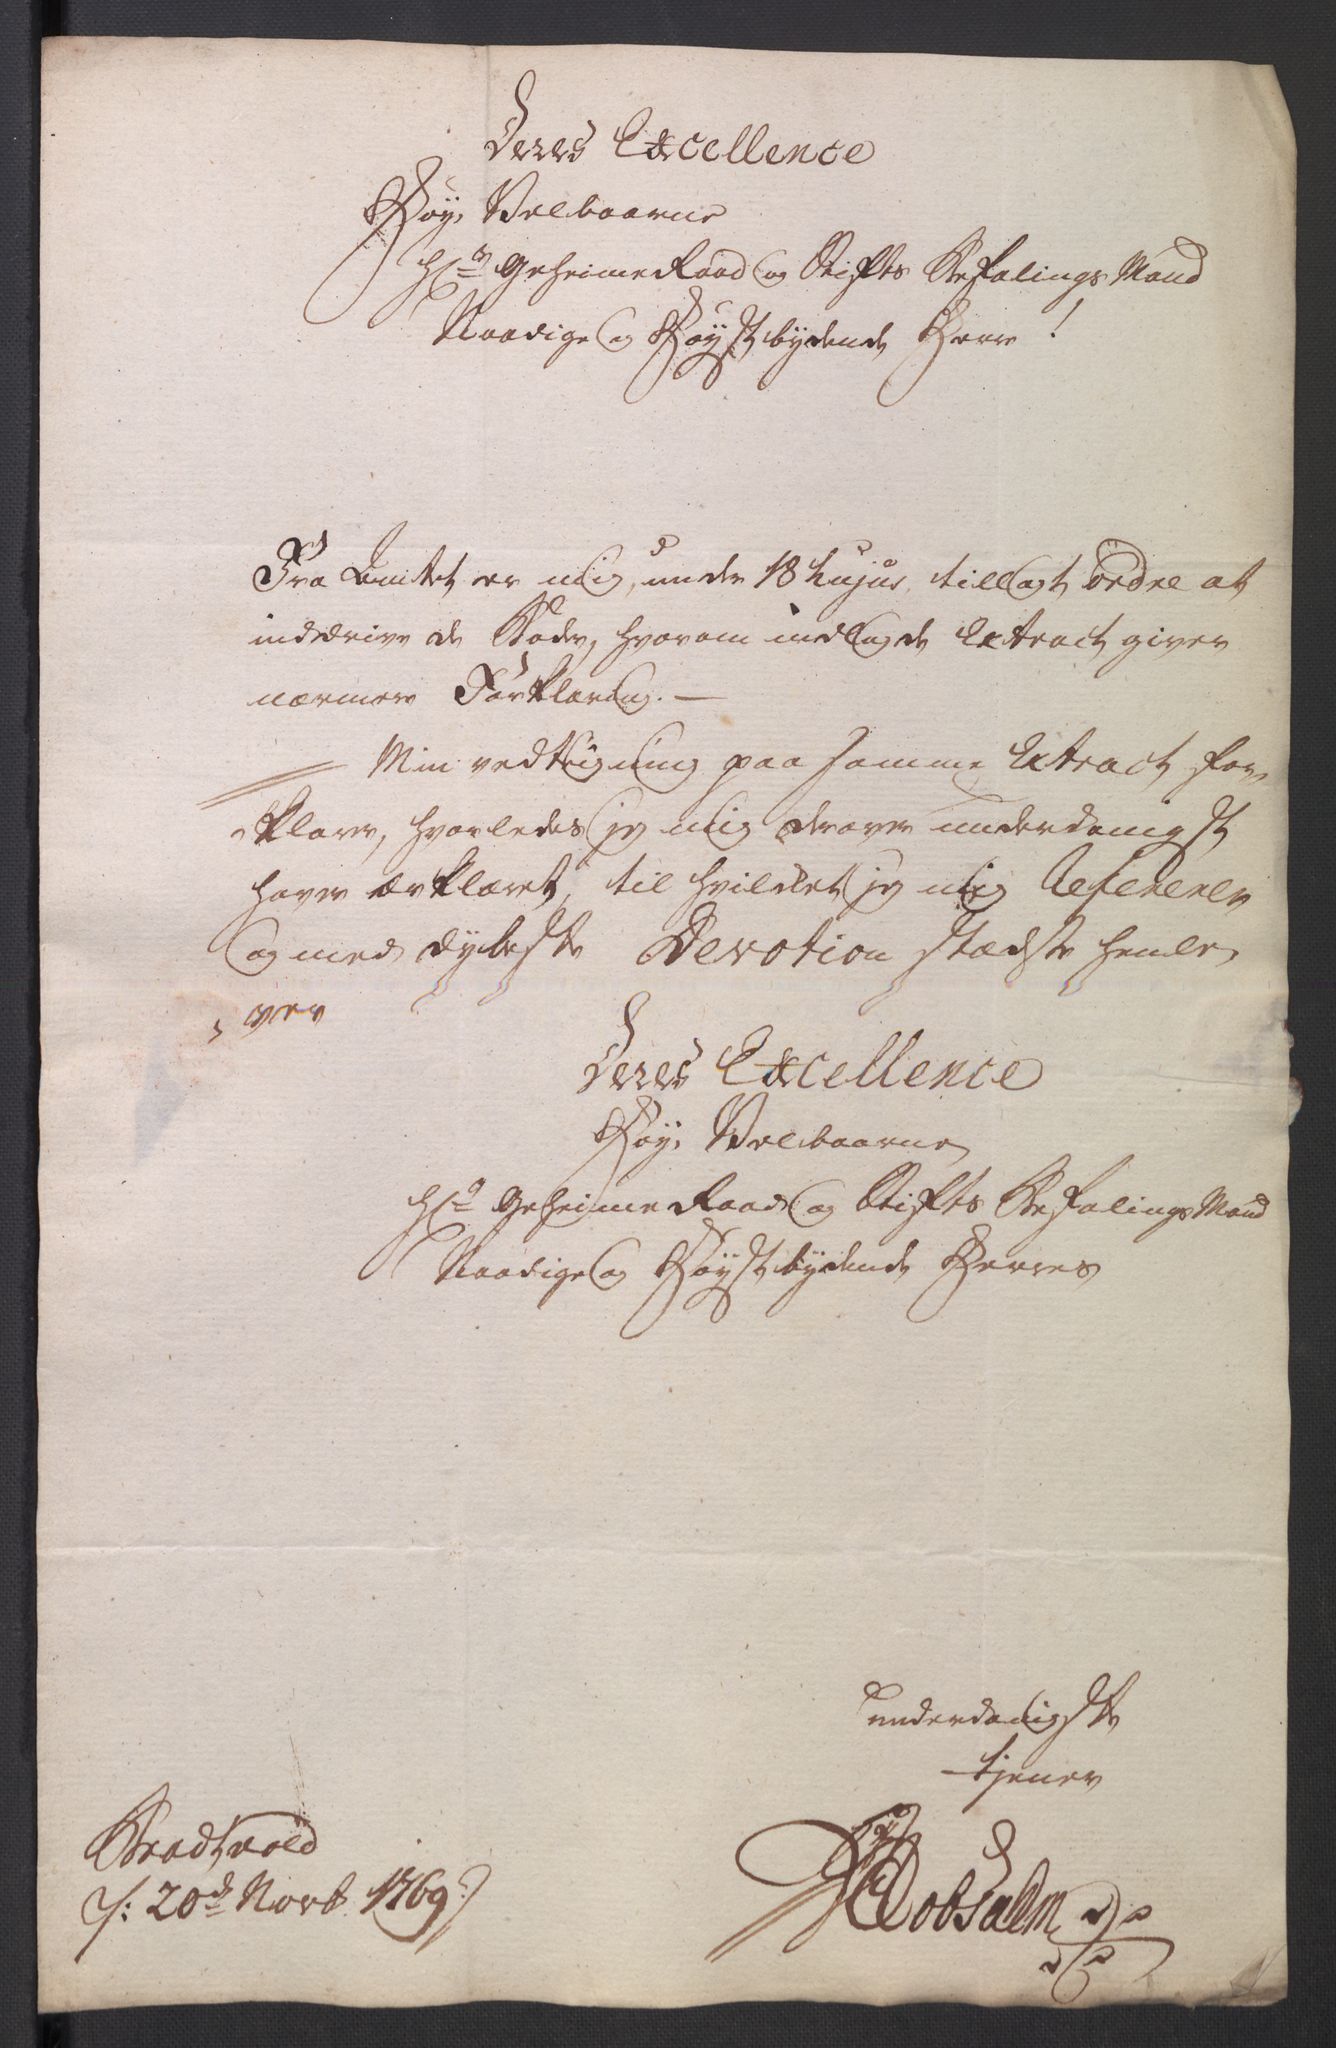 Deres Excellence
Høy Velbaarne
Hr. Geheime Raad og Stifts Befalings Mand
Naadige og Høyst bydende Herre!
Fra Amtet er mig, under 18 hujus, tillagt ordre at
inddrive de Bøder, hvorom indlagde Extract giver
nærmere Forklaring. —
Min vedtegning paa samme Extract for-
klarer, hvorledes jeg mig derover underdanigst
haver ærklæret, til hvilcket jeg mig Refererer
og med dybeste Devotion stædse henle-
ver
Deres Excellence
Høy Velbaarne
Hr. Geheime Raad og Stifts Befalings Mand
Naadige og Høyst bydende Herres
underdanigste
tjener
Bradtvold
d: 20de Novb 1769